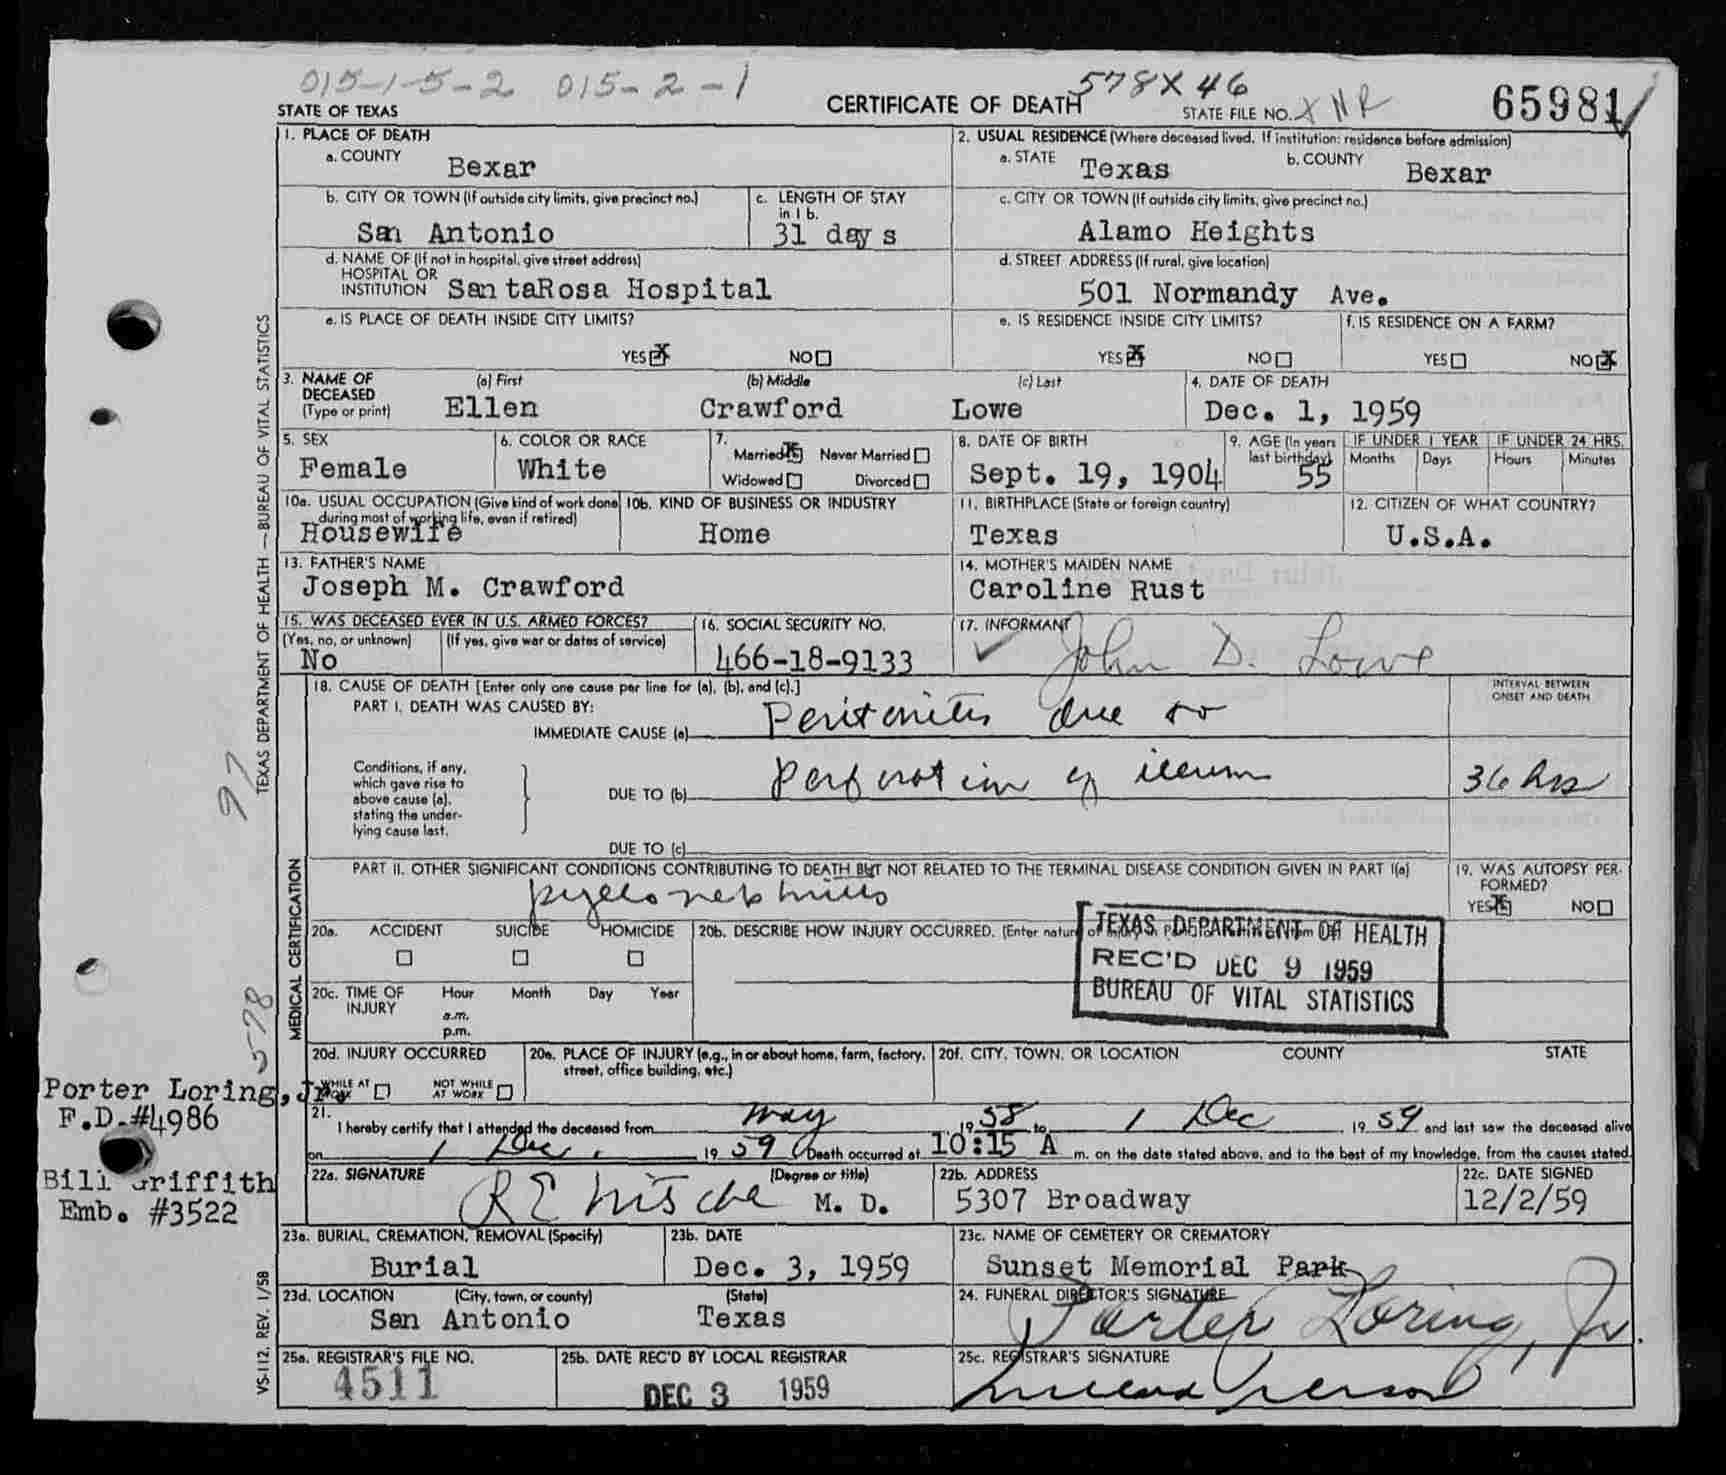 015-1-5-2 015-2-1 578X46
STATE OF TEXAS CERTIFICATE OF DEATH STATE FILE NO. X N R 65981
1. PLACE OF DEATH
a. COUNTY Bexar
2. USUAL RESIDENCE (Where deceased lived. If institution: residence before admission)
a. STATE Texas b. COUNTY Bexar
b. CITY OR TOWN (If outside city limits, give precinct no.) San Antonio
c. LENGTH OF STAY in 1 b. 31 days
c. CITY OR TOWN (If outside city limits, give precinct no.) Alamo Heights
d. NAME OF (If not in hospital, give street address) HOSPITAL OR INSTITUTION SantaRosa Hospital
d. STREET ADDRESS (If rural, give location) 501 Normandy Ave.
e. IS PLACE OF DEATH INSIDE CITY LIMITS? YES X NO
e. IS RESIDENCE INSIDE CITY LIMITS? YES X NO
f. IS RESIDENCE ON A FARM? YES NO X
3. NAME OF DECEASED (Type or print)
(a) First Ellen (b) Middle Crawford (c) Last Lowe
4. DATE OF DEATH Dec. 1, 1959
5. SEX Female
6. COLOR OR RACE White
7. Married X Never Married
Widowed Divorced
8. DATE OF BIRTH Sept. 19, 1904
9. AGE (In years last birthday) 55
IF UNDER 1 YEAR Months Days
IF UNDER 24 HRS. Hours Minutes
10a. USUAL OCCUPATION (Give kind of work done during most of working life, even if retired) Housewife
10b. KIND OF BUSINESS OR INDUSTRY Home
11. BIRTHPLACE (State or foreign country) Texas
12. CITIZEN OF WHAT COUNTRY? U.S.A.
13. FATHER'S NAME Joseph M. Crawford
14. MOTHER'S MAIDEN NAME Caroline Rust
15. WAS DECEASED EVER IN U.S. ARMED FORCES?
(Yes, no, or unknown) No (If yes, give war or dates of service)
16. SOCIAL SECURITY NO. 466-18-9133
17. INFORMANT John D. Lowe
18. CAUSE OF DEATH [Enter only one cause per line for (a), (b), and (c).]
INTERVAL BETWEEN ONSET AND DEATH
PART I. DEATH WAS CAUSED BY:
IMMEDIATE CAUSE (a) Peritonitis due to
Conditions, if any, which gave rise to above cause (a), stating the underlying cause last.
DUE TO (b) perforation of ileum 36 hrs
DUE TO (c)
PART II. OTHER SIGNIFICANT CONDITIONS CONTRIBUTING TO DEATH BUT NOT RELATED TO THE TERMINAL DISEASE CONDITION GIVEN IN PART I(a)
pyelonephritis
19. WAS AUTOPSY PERFORMED? YES X NO
20a. ACCIDENT SUICIDE HOMICIDE
20b. DESCRIBE HOW INJURY OCCURRED. (Enter nature of
TEXAS DEPARTMENT OF HEALTH
REC'D DEC 9 1959
BUREAU OF VITAL STATISTICS
20c. TIME OF INJURY Hour Month Day Year
a.m.
p.m.
20d. INJURY OCCURRED
WHILE AT WORK NOT WHILE AT WORK
20e. PLACE OF INJURY (e.g., in or about home, farm, factory, street, office building, etc.)
20f. CITY, TOWN, OR LOCATION COUNTY STATE
21. I hereby certify that I attended the deceased from May 1958 to 1 Dec 1959 and last saw the deceased alive
on 1 Dec. 1959 Death occurred at 10:15 A m. on the date stated above, and to the best of my knowledge, from the causes stated.
22a. SIGNATURE (Degree or title) R E Nitsche M. D.
22b. ADDRESS 5307 Broadway
22c. DATE SIGNED 12/2/59
23a. BURIAL, CREMATION, REMOVAL (Specify) Burial
23b. DATE Dec. 3, 1959
23c. NAME OF CEMETERY OR CREMATORY Sunset Memorial Park
23d. LOCATION (City, town, or county) (State)
San Antonio Texas
24. FUNERAL DIRECTOR'S SIGNATURE Porter Loring, Jr.
25a. REGISTRAR'S FILE NO. 4511
25b. DATE REC'D BY LOCAL REGISTRAR DEC 3 1959
25c. REGISTRAR'S SIGNATURE
TEXAS DEPARTMENT OF HEALTH—BUREAU OF VITAL STATISTICS
97
MEDICAL CERTIFICATION
578
Porter Loring, Jr.
F.D.#4986
Bill Griffith
Emb. #3522
VS-112, REV. 1/58